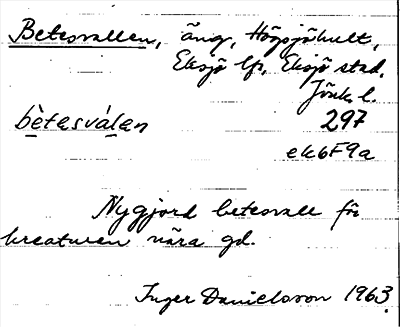 Betesvallen, äng, Högsjöhult,
Eksjö lfs, Eksjö stad,
Jönk. l.
bètasválan 297
ek6F9a
Nygjord betesvall för
kreaturen nära gd.
Inger Danielsson 1963.